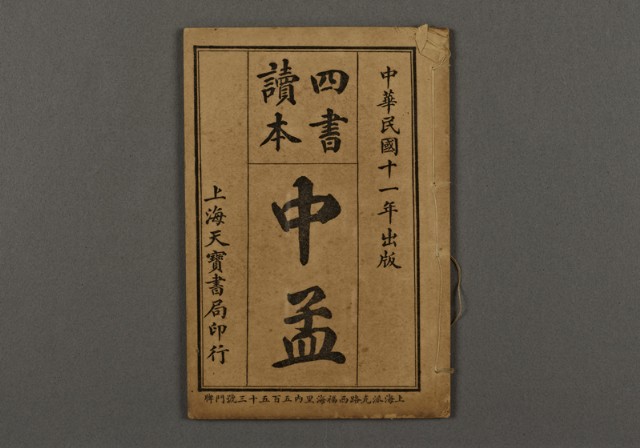 中華民國十一年出版
四書
讀本
中孟
上海天寶書局印行
上海派克路西福海里內五百五十三號門牌